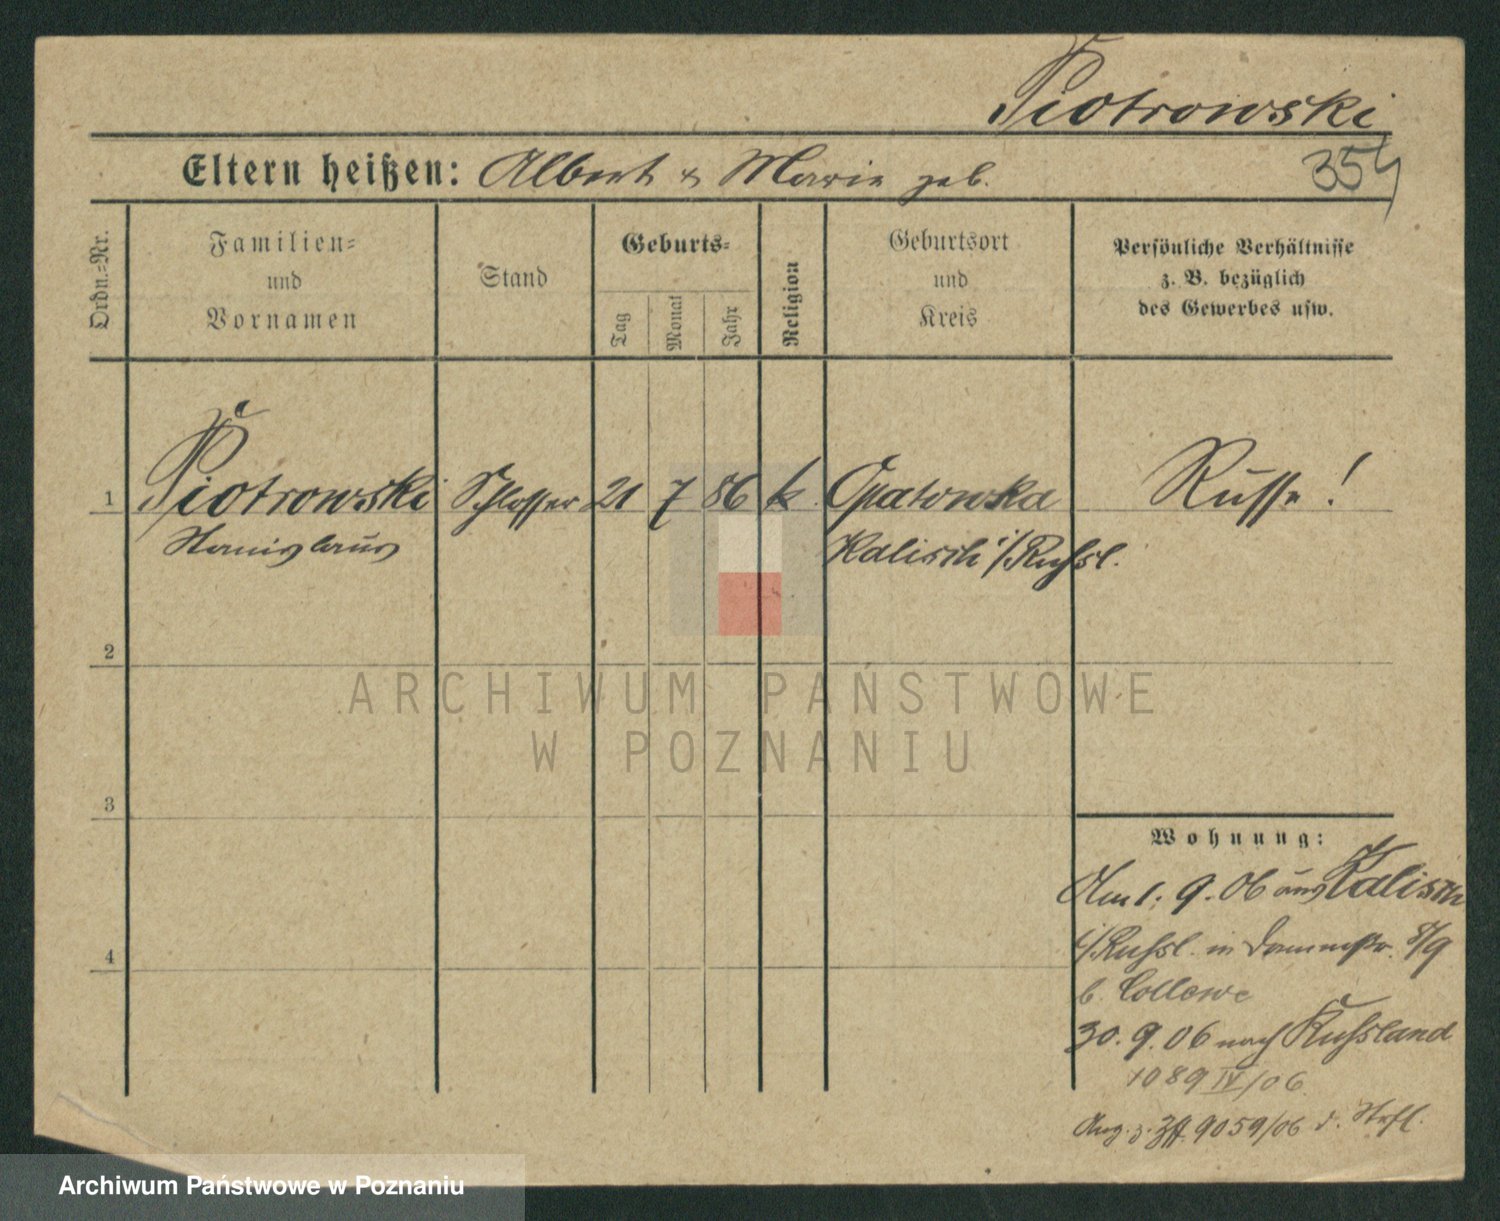 Piotrowski
Eltern heißen: Albert & Marie geb.
354
Ordn.=Nr.
Familien=
und
Vornamen
Stand
Geburts=
Tag
Monat
Jahr
Religion
Geburtsort
und
Kreis
Persönliche Verhältnisse
z. B. bezüglich
des Gewerbes usw.
1 Piotrowski Schlosser 21 7 86 k. Opatowska Russe!
Stanislaus Kalisch i/Rußl.
2
ARCHIWUM PAŃSTWOWE
W POZNANIU
3
Wohnung:
Am 1. 9. 06 aus Kalisch
i/Rußl. in Dammstr. 8/9
b. Collewe
4
30. 9. 06 nach Rußland
1089 IV/06
9059/06
Archiwum Państwowe w Poznaniu